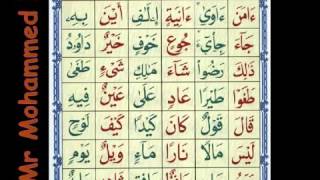 ءَامَنَ ءَاوَىٰ ءَانِيَةٍ إِۦلَـٰفِ أَيْنَ بِهِۦ
جَآءَ جِاْىٓءَ جُوعٍ خَوْفٍ خَيْرٌ دَاوُۥدَ
ذَٰلِكَ رَضُواْ شَآءَ مَـٰلِكِ شَىْءٍ طَغَىٰ
طَغَوْاْ طَيْرًا عَادٍ عَلَىٰ عَيْنٌ فِيهِ
قَالَ قَوْلٌ كَانَ كَيْدًا كَيْفَ لَوْحٍ
لَيْسَ مَالًا نَارًا مَآءٍ وَيْلٌ يَوْمٍ
Mr Mohammed